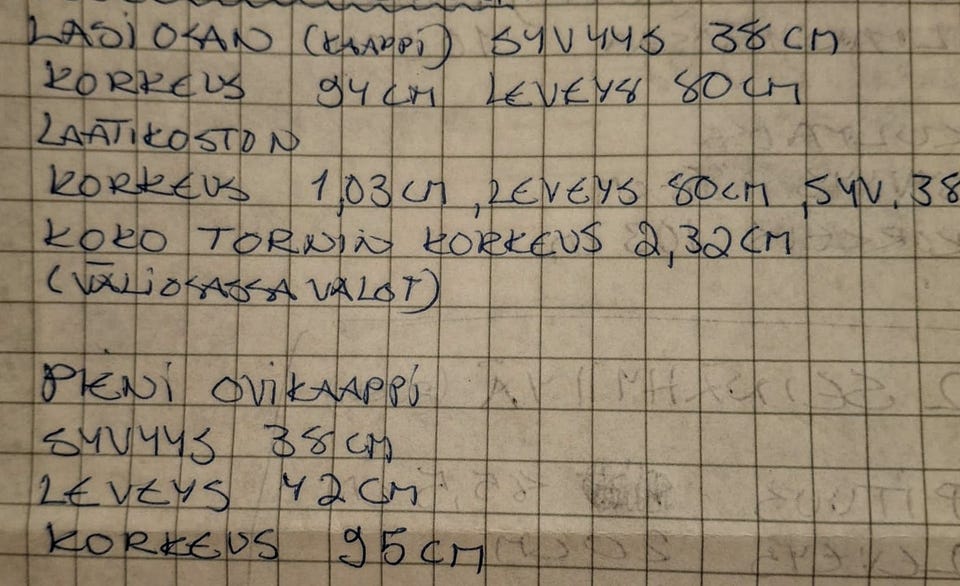 LASIOSAN (KAAPPI) SYVYYS 38 CM
KORKEUS 94 CM LEVEYS 80 CM
LAATIKOSTON
KORKEUS 1,03 CM, LEVEYS 80 CM, SYV. 38
KOKO TORNIN KORKEUS 2,32 CM
(VÄLIOSASSA VALOT)
PIENI OVIKAAPPI
SYVYYS 38 CM
LEVEYS 42 CM
KORKEUS 95 CM